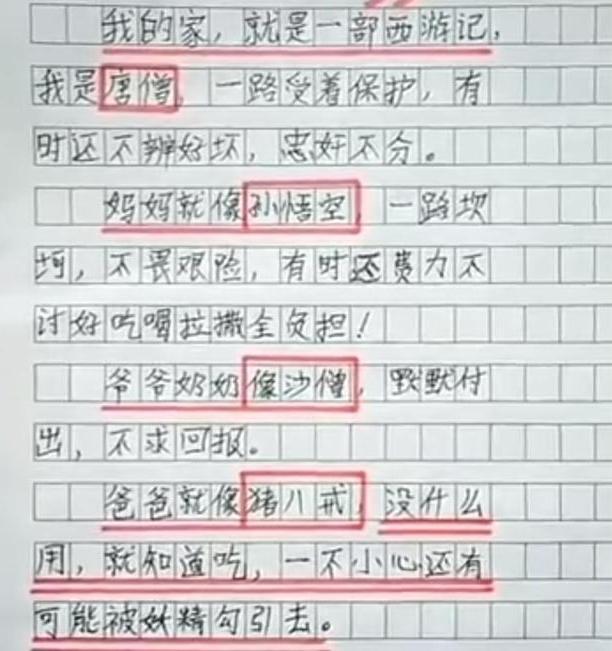 我的家，就是一部西游记，
我是唐僧，一路受着保护，有
时还不辨好坏，忠奸不分。
妈妈就像孙悟空，一路坎
坷，不畏艰险，有时还费力不
讨好吃喝拉撒全负担！
爷爷奶奶像沙僧，默默付
出，不求回报。
爸爸就像猪八戒，没什么
用，就知道吃，一不小心还有
可能被妖精勾引去。